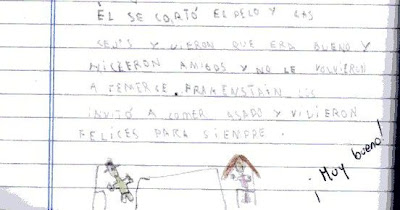 ÉL SE CORTÓ EL PELO Y LAS
Y VIERON QUE ERA BUENO Y
HICIERON AMIGOS Y NO LE VOLVIERON
A TEMERLE. FRANENSTAIN LOS
INVITÓ A COMER ASADO Y VIVIERON
FELICES PARA SIEMPRE.
¡Muy bueno!